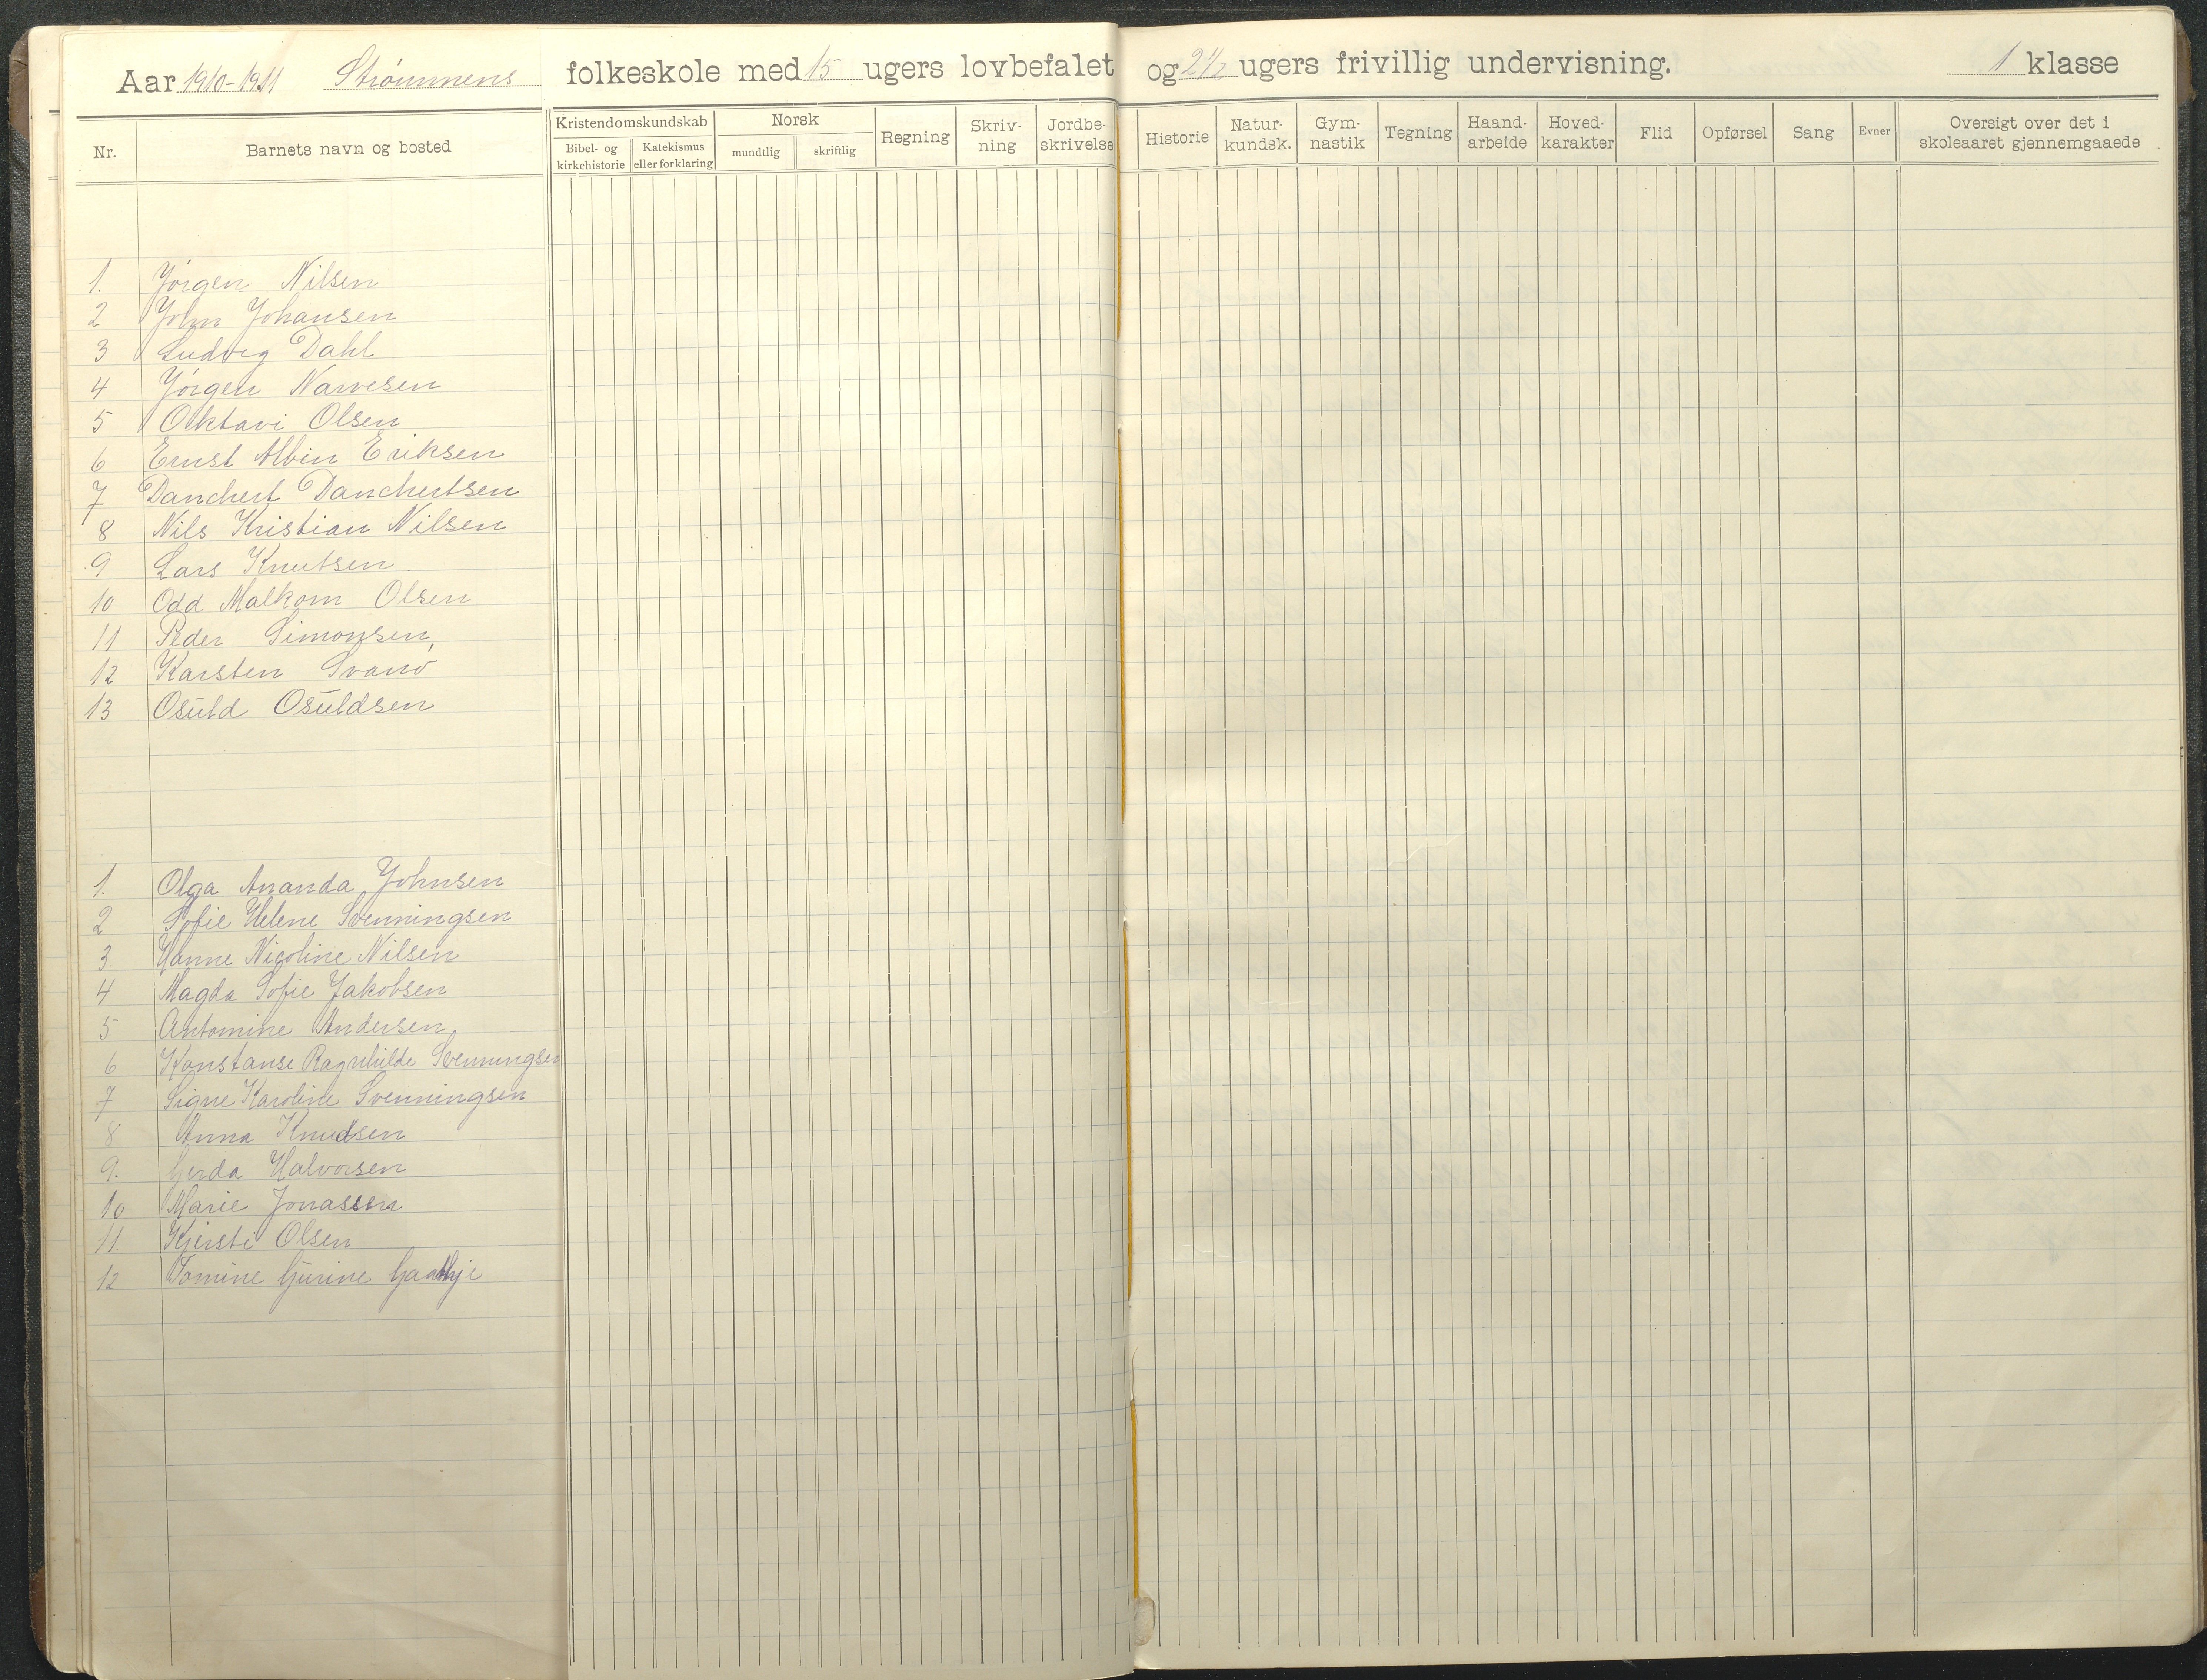 Aar 1910-1911 Strømmens folkeskole med 15 ugers lovbefalet og 2 1/2 ugers frivillig undervisning. 1 klasse
Nr.
Barnets navn og bosted
Kristendomskundskab
Bibel- og kirkehistorie
Katekismus eller forklaring
Norsk
mundtlig
skriftlig
Regning
Skriv-
ning
Jordbe-
skrivelse
Historie
Natur-
kundsk.
Gym-
nastik
Tegning
Haand-
arbeide
Hoved-
karakter
Flid
Opførsel
Sang
Evner
Oversigt over det i
skoleaaret gjennemgaaede
1. Jörgen Nilsen
2 John Johansen
3 Ludvig Dahl
4 Jörgen Narvesen
5 Oktavi Olsen
6 Ernst Albin Eriksen
7 Danchert Danchertsen
8 Nils Kristian Nilsen
9 Lars Knutsen
10 Odd Malkom Olsen
11 Peder Simonsen,
12 Karsten Svanö
13 Osuld Osuldsen
1. Olga Ananda Johnsen
2 Sofie Helene Svenningsen
3 Hanne Nicoline Nilsen
4 Magda Sofie Jakobsen
5 Antomine Andersen
6 Konstanse Ragnhilde Svenningsen
7 Signe Karoline Svenningsen
8 Anna Knudsen
9. Gerda Halvorsen
10 Marie Jonassen
11. Kjersti Olsen
12 Tomine Gurine